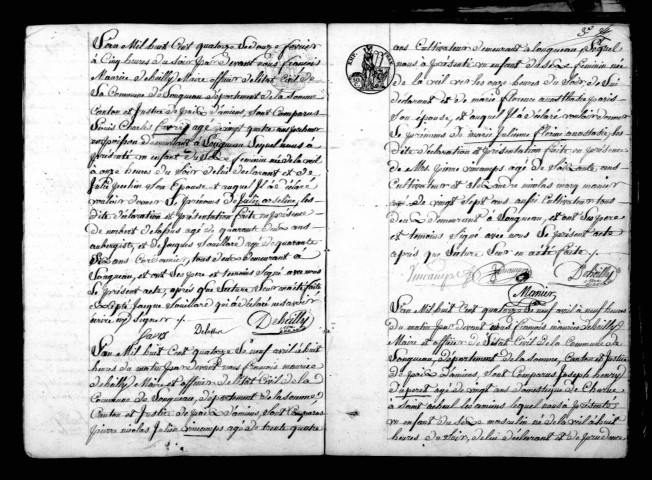 L'an Mil huit Cent quatorze Le douze fevrier
à Cinq heures du soir par devant nous françois
Maurice Debeilly Maire officier de l'état Civil de
La Commune de Longueau département de la Somme
Canton et Justice de paix d'amiens, sont Comparus
Louis Charles favre agé vingt quatre ans
demeurant à Longueau Lequel nous a
présenté un enfant du Sexe feminin née de la veil
à onze heures du soir de lui déclarant et de
Julie Son Epouse et auquel il a déclaré
vouloir donner Le prénoms de Julie ard eline, les
dite déclaration et présentation faite en présence
de norbert delappe agé de quarante deux ans
aubergiste et de Jacques Souillard agé de quarante
ans Cordonnier, tous deux demeurant à
Longueau, et ont Les pere et temoins Signé avec nous
Le présent acte, après que Lecture Leur en a été faite
Excepté Jacque Souillard qui a déclaré ne savoir
écrire ny Signer ./.
favre Delappe Debeilly
L'an Mil huit Cent quatorze Le neuf avril à huit
heures du matin par devant nous françois maurice
debeilly Maire et officier de l'état Civil de la
Commune de Longueau, département de la somme
Canton et Justice de paix d'amiens, sont Comparus
pierre nicolas Julien Vincamps agé de trente quatre
3e
ans Cultivateur demeurant à Longueau Lequel
nous a présenté un enfant du Sexe feminin née
de la veil vers les onze heures du Soir, de Lui
déclarant et de marie florence anasthasie paris
Son épouse, et auquel il a déclaré vouloir donner
Le prénoms de marie Julienne florine anasthasie, les
dite déclaration et présentation faite en présence
de Mrs. pierre vincamps agé de Soixante ans
Cultivateur et de nicolas mary manier
agé de vingt Sept ans aussi Cultivateur tous
deux demeurant à Longueau, et ont Les pere
et temoins Signé avec nous Le présent acte
après que Lecture Leur en a été faite ./.
Vincamps Vincamps Debeilly
Manier
L'an Mil huit Cent quatorze Le neuf avril à neuf
heures du matin par devant nous françois maurice debeilly
Maire et officier de l'état Civil de la Commune de
Longueau, département de la Somme, Canton et Justice
de paix d'amiens, sont Comparus Joseph henry
deporet agé de vingt ans domestique de Charue
à Saint acheul les amiens lequel nous a présenté
un enfant du Sexe masculin né de la veil à huit
heures du soir, de lui déclarant et de prudence